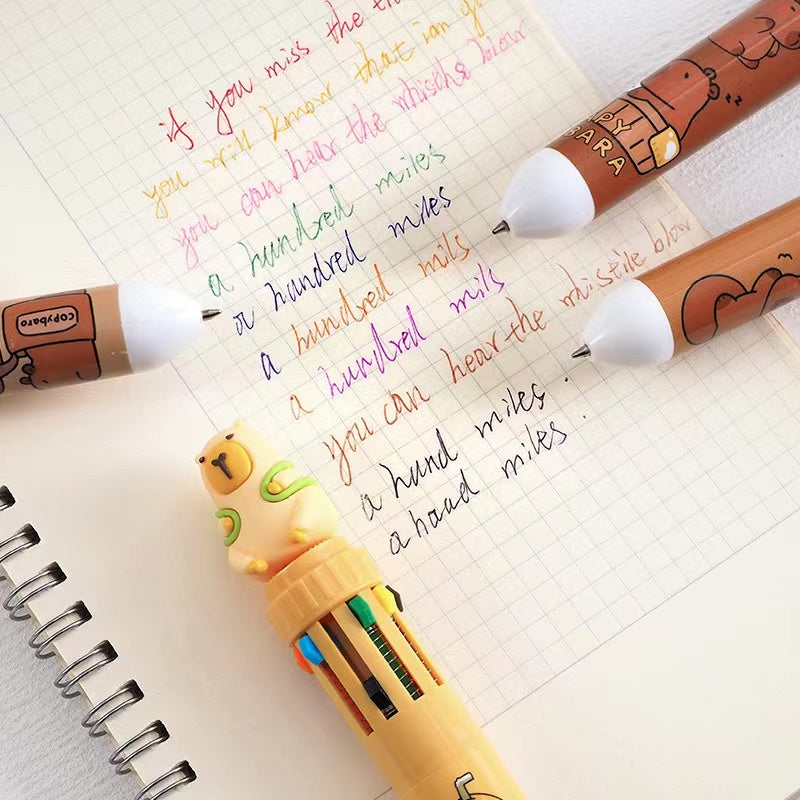 if you miss the
you will know that iam
you can hear the whistle blow
a hundred miles
a handred miles
a hundred mils
a hundred mils
you can hear the whistile blow
a hund miles.
a hoad miles.
COPYbaro
BARA